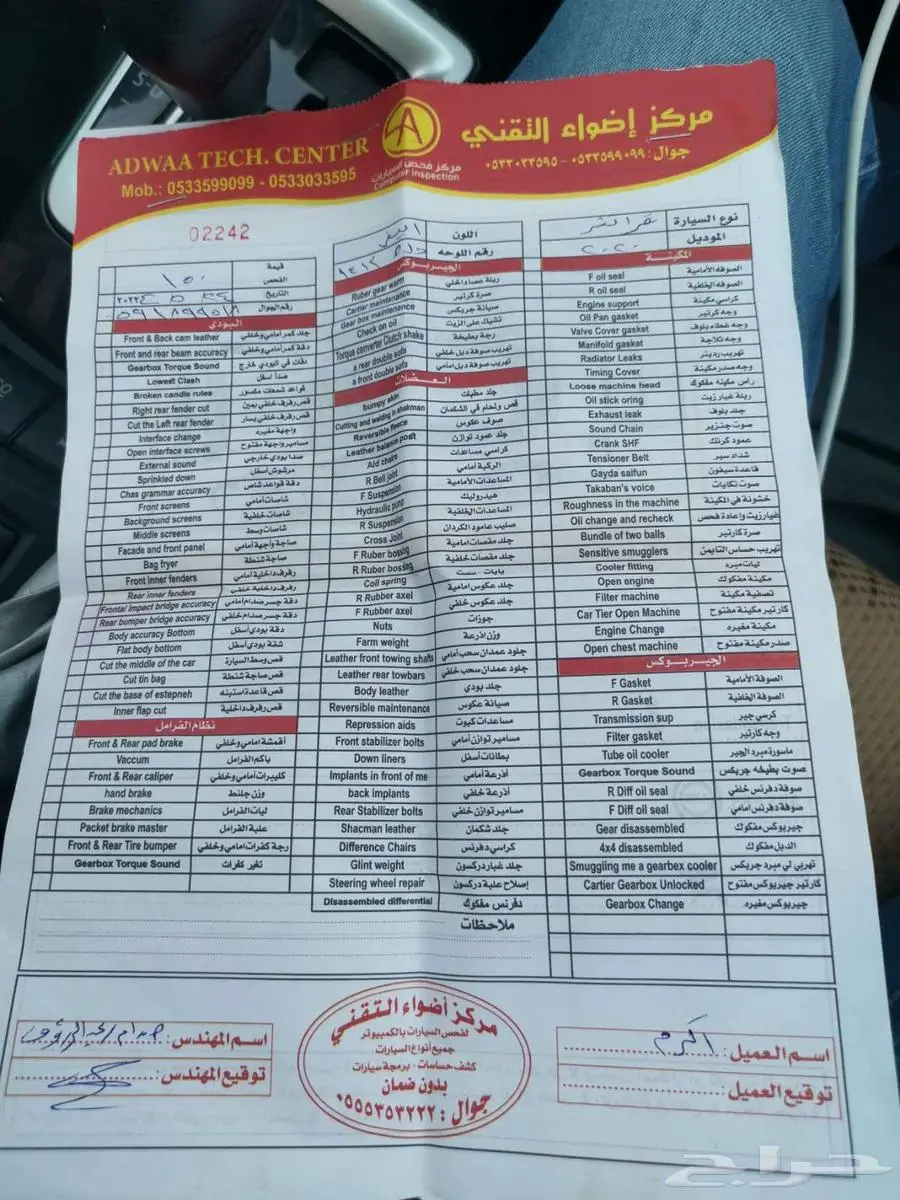 ADWAA TECH. CENTER
Mob.: 0533599099 - 0533033595
مركز فحص السيارات
Computer inspection
مركز إضواء التقني
جوال: ٠٥٣٣٥٩٩٠٩٩ - ٠٥٣٣٠٣٣٥٩٥
02242
نوع السيارة
الموديل ٢٠٢٠
اللون
رقم اللوحه
قيمة الفحص ١٥٠
التاريخ
رقم الجوال
المكينة
F oil seal الصوفه الأمامية
R oil seal الصوفه الخلفية
Engine support كراسي مكينة
Oil Pan gasket وجه كرتير
Valve Cover gasket وجه غطاء بلوف
Manifold gasket وجه ثلاجة
Radiator Leaks تهريب رديتر
Timing Cover وجه صدر مكينة
Loose machine head راس مكينه مفكوك
Oil stick oring ربلة عيار زيت
Exhaust leak جلد بلوف
Sound Chain صوت جنزير
Crank SHF عمود كرنك
Tensioner Belt شداد سير
Gayda saifun قاعدة سيفون
Takaban's voice صوت تكايات
Roughness in the machine خشونة في المكينة
Oil change and recheck غيار زيت وإعادة فحص
Bundle of two balls صرة كارتير
Sensitive smugglers تهريب حساس التايمن
Cooler fitting ليات مبرد
Open engine مكينة مفكوك
Filter machine تصفية مكينة
Car Tier Open Machine كارتير مكينة مفتوح
Engine Change مكينة مغيره
Open chest machine صدر مكينة مفتوح
الجيربوكس
F Gasket الصوفة الأمامية
R Gasket الصوفة الخلفية
Transmission sup كرسي جير
Filter gasket وجه كارتير
Tube oil cooler ماسورة مبرد الجير
Gearbox Torque Sound صوت بطيخه جربكس
R Diff oil seal صوفة دفرنس خلفي
F Diff oil seal صوفة دفرنس امامي
Gear disassembled جيربوكس مفكوك
4x4 disassembled الدبل مفكوك
Smuggling me a gearbex cooler تهربي لي مبرد جربكس
Cartier Gearbox Unlocked كارتير جيربوكس مفتوح
Gearbox Change جيربوكس مغيره
الجيربوكس
Ruber gear warm ربلة عصا داخلي
Cartier maintenance صرة كرتير
Gear box maintenance صيانة جربكس
Check on oil تشيك على الزيت
Torque convertar Clutch shake رجة بطيخة
a rear double sofa تهريب صوفة دبل خلفي
a front double sofa تهريب صوفة دبل امامي
العضلات
bumpy skin جلد مطبات
Cutting and welding in shakman قص ولحام في الشكمان
Reversible fleece صوف عكوس
Leather balance post جلد عمود توازن
Ald chairs كراسي مساعدات
R Bell joint الركبة أمامي
F Suspension المساعدات الأمامية
Hydraulic pump هيدروليك
R Suspension المساعدات الخلفية
Cross Joint صليب عامود الكردان
F Ruber bossing جلد مقصات امامية
R Ruber bossing جلد مقصات خلفية
Coil spring يايات - سست
R Rubber axel جلد عكوس امامية
F Rubber axel جلد عكوس خلفي
Nuts جوزات
Farm weight وزن اذرعة
Leather front towing shafts جلود عمدان سحب أمامي
Leather rear towbars جلود عمدان سحب خلفي
Body leather جلد بودي
Reversible maintenance صيانة عكوس
Repression aids مساعدات كبوت
Front stabilizer bolts مسامير توازن أمامي
Down liners بطانات أسفل
Implants in front of me أذرعة أمامي
back implants أذرعة خلفي
Rear Stabilizer bolts مسامير توازن خلفي
Shacman leather جلد شكمان
Difference Chairs كراسي دفرنس
Glint weight جلد غبار دركسون
Steering wheel repair إصلاح علبة دركسون
Disassembled differential دفرنس مفكوك
ملاحظات
البودي
Front & Back cam leather جلد كمر أمامي وخلفي
Front and rear beam accuracy دقة كمر أمامي وخلفي
Gearbox Torque Sound دقات في البودي خارج
Lowest Clash صدأ اسفل
Broken candle rules قواعد شمعات مكسور
Right rear fender cut قص رفرف خلفي يمين
Cut the Left rear fender قص رفرف خلفي يسار
Interface change واجهة مغيره
Open interface screws مسامير واجهة مفتوح
External sound صدا بودي خارجي
Sprinkled down مرشوش أسفل
Chas grammar accuracy دقة قواعد شاص
Front screens شاصات أمامي
Background screens شاصات خلفية
Middle screens شاصات وسط
Facade and front panel صاجة واجهة أمامي
Bag fryer صاجة شنطة
Front inner fenders رفرف داخلية أمامي
Rear inner fenders رفرف داخلية خلفي
Frontal impact bridge accuracy دقة جسر صدام أمامي
Rear bumper bridge accuracy دقة جسر صدام خلفي
Body accuracy Bottom دقة بودي أسفل
Flat body bottom شقة بودي أسفل
Cut the middle of the car قص وسط السيارة
Cut tin bag قص صاجة شنطة
Cut the base of estepneh قص قاعدة استبنه
Inner flap cut قص رفرف داخلية
نظام الفرامل
Front & Rear pad brake أقمشة امامي وخلفي
Vaccum باكم الفرامل
Front & Rear caliper كليبرات أمامي وخلفي
hand brake وزن جلنط
Brake mechanics ليات الفرامل
Packet brake master علبة الفرامل
Front & Rear Tire bumper رجة كفرات امامي وخلفي
Gearbox Torque Sound تغير كفرات
اسم العميل: اكرم
توقيع العميل:
مركز أضواء التقني
لفحص السيارات بالكمبيوتر
جميع أنواع السيارات
كشف حساسات - برمجة سيارات
بدون ضمان
جوال: ٠٥٥٥٣٥٣٢٢٢
اسم المهندس:
توقيع المهندس:
حراج